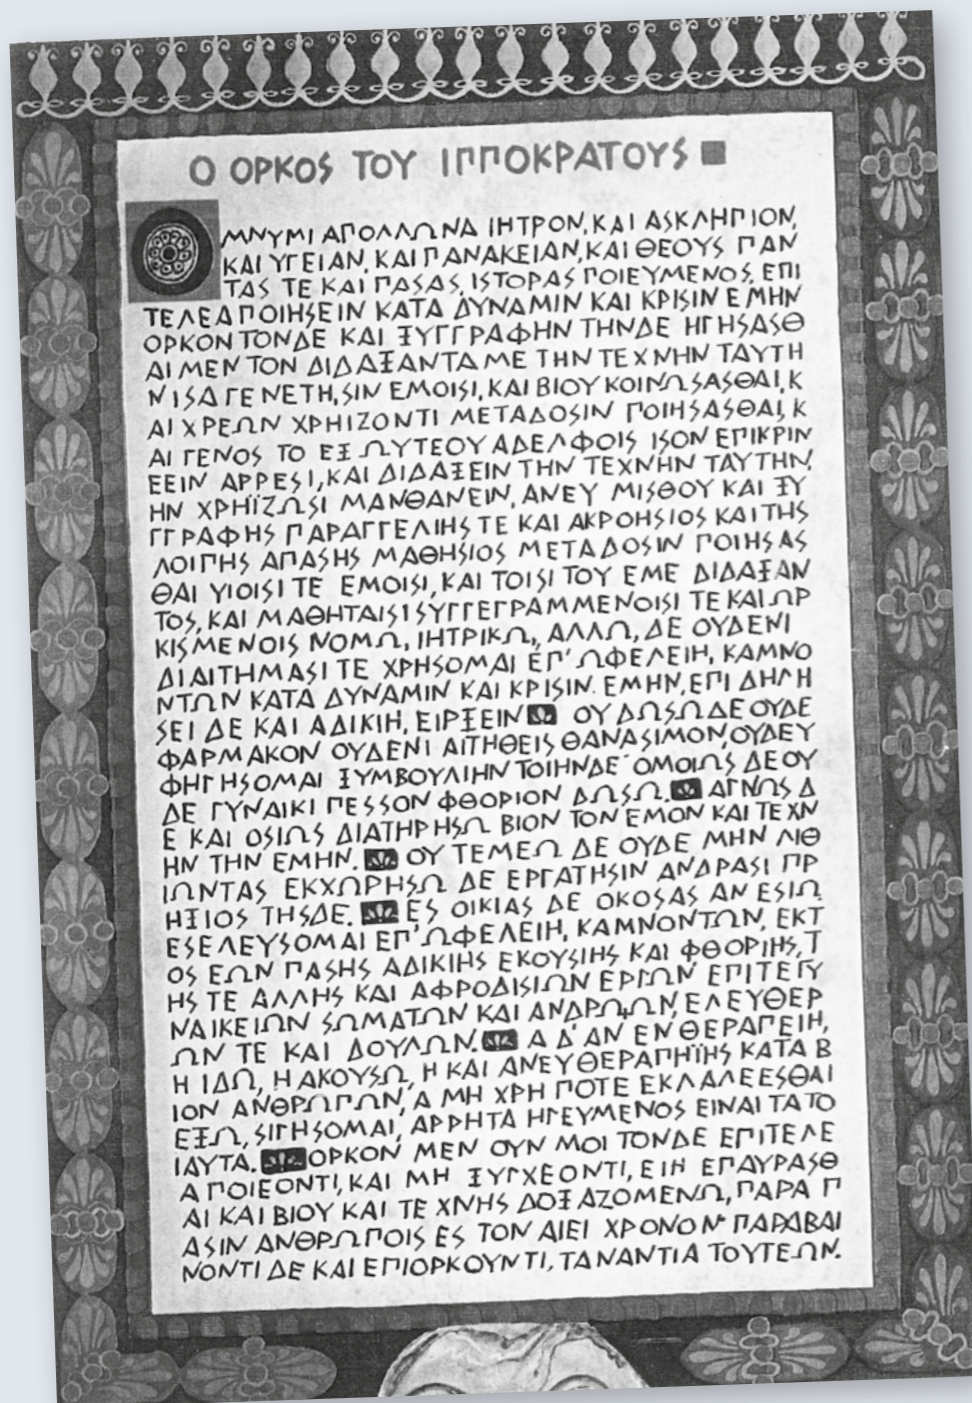 Ο ΟΡΚΟΣ ΤΟΥ ΙΠΠΟΚΡΑΤΟΥΣ
ΟΜΝΥΜΙ ΑΠΟΛΛΩΝΑ ΙΗΤΡΟΝ, ΚΑΙ ΑΣΚΛΗΠΙΟΝ,
ΚΑΙ ΥΓΕΙΑΝ, ΚΑΙ ΠΑΝΑΚΕΙΑΝ, ΚΑΙ ΘΕΟΥΣ ΠΑΝ
ΤΑΣ ΤΕ ΚΑΙ ΠΑΣΑΣ, ΙΣΤΟΡΑΣ ΠΟΙΕΥΜΕΝΟΣ, ΕΠΙ
ΤΕΛΕΑ ΠΟΙΗΣΕΙΝ ΚΑΤΑ ΔΥΝΑΜΙΝ ΚΑΙ ΚΡΙΣΙΝ ΕΜΗΝ
ΟΡΚΟΝ ΤΟΝΔΕ ΚΑΙ ΞΥΓΓΡΑΦΗΝ ΤΗΝΔΕ ΗΓΗΣΑΣΘ
ΑΙ ΜΕΝ ΤΟΝ ΔΙΔΑΞΑΝΤΑ ΜΕ ΤΗΝ ΤΕΧΝΗΝ ΤΑΥΤΗ
Ν ΙΣΑ ΓΕΝΕΤΗ,ΣΙΝ ΕΜΟΙΣΙ, ΚΑΙ ΒΙΟΥ ΚΟΙΝΩΣΑΣΘΑΙ, Κ
ΑΙ ΧΡΕΩΝ ΧΡΗΙΖΟΝΤΙ ΜΕΤΑΔΟΣΙΝ ΠΟΙΗΣΑΣΘΑΙ, Κ
ΑΙ ΓΕΝΟΣ ΤΟ ΕΞ ΩΥΤΕΟΥ ΑΔΕΛΦΟΙΣ ΙΣΟΝ ΕΠΙΚΡΙΝ
ΕΕΙΝ ΑΡΡΕΣΙ, ΚΑΙ ΔΙΔΑΞΕΙΝ ΤΗΝ ΤΕΧΝΗΝ ΤΑΥΤΗΝ,
ΗΝ ΧΡΗΪΖΩΣΙ ΜΑΝΘΑΝΕΙΝ, ΑΝΕΥ ΜΙΣΘΟΥ ΚΑΙ ΞΥ
ΓΓΡΑΦΗΣ ΠΑΡΑΓΓΕΛΙΗΣ ΤΕ ΚΑΙ ΑΚΡΟΗΣΙΟΣ ΚΑΙ ΤΗΣ
ΛΟΙΠΗΣ ΑΠΑΣΗΣ ΜΑΘΗΣΙΟΣ ΜΕΤΑΔΟΣΙΝ ΠΟΙΗΣΑΣ
ΘΑΙ ΥΙΟΙΣΙ ΤΕ ΕΜΟΙΣΙ, ΚΑΙ ΤΟΙΣΙ ΤΟΥ ΕΜΕ ΔΙΔΑΞΑΝ
ΤΟΣ, ΚΑΙ ΜΑΘΗΤΑΙΣΙ ΣΥΓΓΕΓΡΑΜΜΕΝΟΙΣΙ ΤΕ ΚΑΙ ΩΡ
ΚΙΣΜΕΝΟΙΣ ΝΟΜΩ, ΙΗΤΡΙΚΩ,, ΑΛΛΩ, ΔΕ ΟΥΔΕΝΙ
ΔΙΑΙΤΗΜΑΣΙ ΤΕ ΧΡΗΣΟΜΑΙ ΕΠ' ΩΦΕΛΕΙΗ, ΚΑΜΝΟ
ΝΤΩΝ ΚΑΤΑ ΔΥΝΑΜΙΝ ΚΑΙ ΚΡΙΣΙΝ ΕΜΗΝ, ΕΠΙ ΔΗΛΗ
ΣΕΙ ΔΕ ΚΑΙ ΑΔΙΚΙΗ, ΕΙΡΞΕΙΝ ΟΥ ΔΩΣΩ ΔΕ ΟΥΔΕ
ΦΑΡΜΑΚΟΝ ΟΥΔΕΝΙ ΑΙΤΗΘΕΙΣ ΘΑΝΑΣΙΜΟΝ, ΟΥΔΕ Υ
ΦΗΓΗΣΟΜΑΙ ΞΥΜΒΟΥΛΙΗΝ ΤΟΙΗΝΔΕ· ΟΜΟΙΩΣ ΔΕ ΟΥ
ΔΕ ΓΥΝΑΙΚΙ ΠΕΣΣΟΝ ΦΘΟΡΙΟΝ ΔΩΣΩ. ΑΓΝΩΣ Δ
Ε ΚΑΙ ΟΣΙΩΣ ΔΙΑΤΗΡΗΣΩ ΒΙΟΝ ΤΟΝ ΕΜΟΝ ΚΑΙ ΤΕΧΝ
ΗΝ ΤΗΝ ΕΜΗΝ. ΟΥ ΤΕΜΕΩ ΔΕ ΟΥΔΕ ΜΗΝ ΛΙΘ
ΙΩΝΤΑΣ ΕΚΧΩΡΗΣΩ ΔΕ ΕΡΓΑΤΗΣΙΝ ΑΝΔΡΑΣΙ ΠΡ
ΗΞΙΟΣ ΤΗΣΔΕ. ΕΣ ΟΙΚΙΑΣ ΔΕ ΟΚΟΣΑΣ ΑΝ ΕΣΙΩ
ΕΣΕΛΕΥΣΟΜΑΙ ΕΠ' ΩΦΕΛΕΙΗ, ΚΑΜΝΟΝΤΩΝ, ΕΚΤ
ΟΣ ΕΩΝ ΠΑΣΗΣ ΑΔΙΚΙΗΣ ΕΚΟΥΣΙΗΣ ΚΑΙ ΦΘΟΡΙΗΣ, Τ
ΗΣ ΤΕ ΑΛΛΗΣ ΚΑΙ ΑΦΡΟΔΙΣΙΩΝ ΕΡΓΩΝ ΕΠΙ ΤΕ ΓΥ
ΝΑΙΚΕΙΩΝ ΣΩΜΑΤΩΝ ΚΑΙ ΑΝΔΡΩ,ΩΝ, ΕΛΕΥΘΕΡ
ΩΝ ΤΕ ΚΑΙ ΔΟΥΛΩΝ. Α Δ' ΑΝ ΕΝ ΘΕΡΑΠΕΙΗ,
Η ΙΔΩ, Η ΑΚΟΥΣΩ, Η ΚΑΙ ΑΝΕΥ ΘΕΡΑΠΗΪΗΣ ΚΑΤΑ Β
ΙΟΝ ΑΝΘΡΩΠΩΝ, Α ΜΗ ΧΡΗ ΠΟΤΕ ΕΚΛΑΛΕΕΣΘΑΙ
ΕΞΩ, ΣΙΓΗΣΟΜΑΙ, ΑΡΡΗΤΑ ΗΓΕΥΜΕΝΟΣ ΕΙΝΑΙ ΤΑ ΤΟ
ΙΑΥΤΑ. ΟΡΚΟΝ ΜΕΝ ΟΥΝ ΜΟΙ ΤΟΝΔΕ ΕΠΙΤΕΛΕ
Α ΠΟΙΕΟΝΤΙ, ΚΑΙ ΜΗ ΞΥΓΧΕΟΝΤΙ, ΕΙΗ ΕΠΑΥΡΑΣΘ
ΑΙ ΚΑΙ ΒΙΟΥ ΚΑΙ ΤΕΧΝΗΣ ΔΟΞΑΖΟΜΕΝΩ, ΠΑΡΑ Π
ΑΣΙΝ ΑΝΘΡΩΠΟΙΣ ΕΣ ΤΟΝ ΑΙΕΙ ΧΡΟΝΟΝ· ΠΑΡΑΒΑΙ
ΝΟΝΤΙ ΔΕ ΚΑΙ ΕΠΙΟΡΚΟΥΝΤΙ, ΤΑΝΑΝΤΙΑ ΤΟΥΤΕΩΝ.